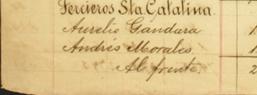 Terceros Sta Catalina.
Aurelio Gandara
Andrés Morales
Al frente,